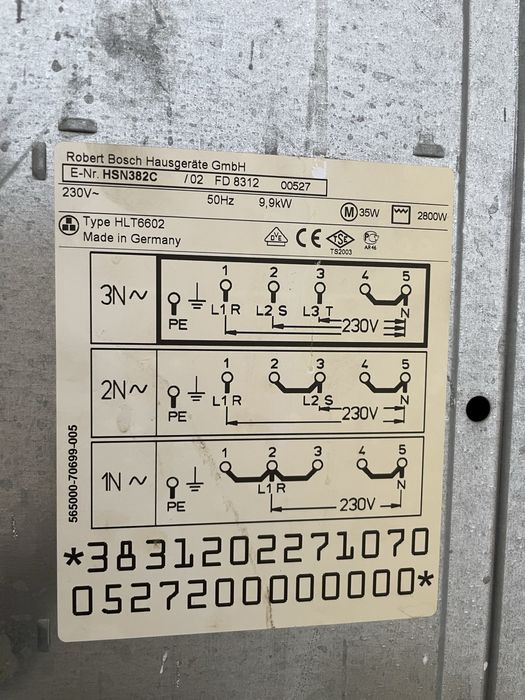 Robert Bosch Hausgeräte GmbH
E-Nr. HSN382C /02 FD 8312 00527
230V~ 50Hz 9,9kW M 35W 2800W
Type HLT6602
Made in Germany
DVE CE TSE
TS2003
AR46
3N~ 1 2 3 4 5
PE L1 R L2 S L3 T N
230V
2N~ 1 2 3 4 5
PE L1 R L2 S N
230V
1N~ 1 2 3 4 5
PE L1 R N
230V
565000-70699-005
*3831202271070
0527200000000*